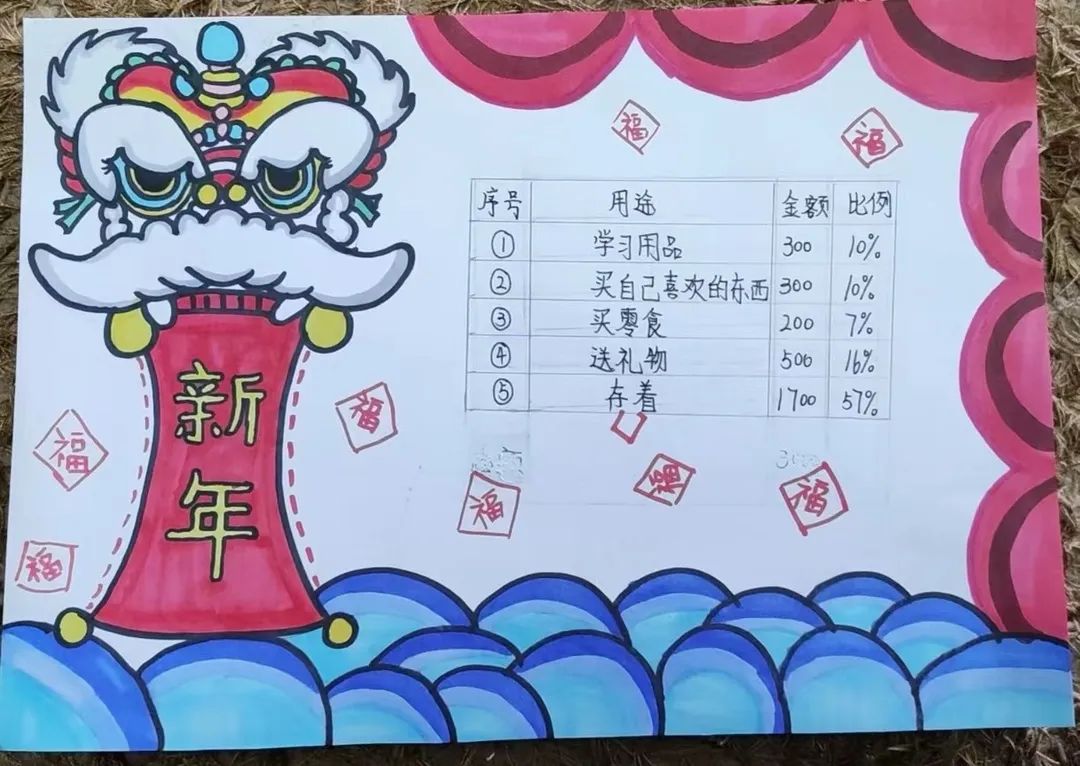 福
福
序号 用途 金额 比例
① 学习用品 300 10%
② 买自己喜欢的东西 300 10%
③ 买零食 200 7%
④ 送礼物 500 16%
⑤ 存着 1700 57%
新
年
福
福
福
福
福
福